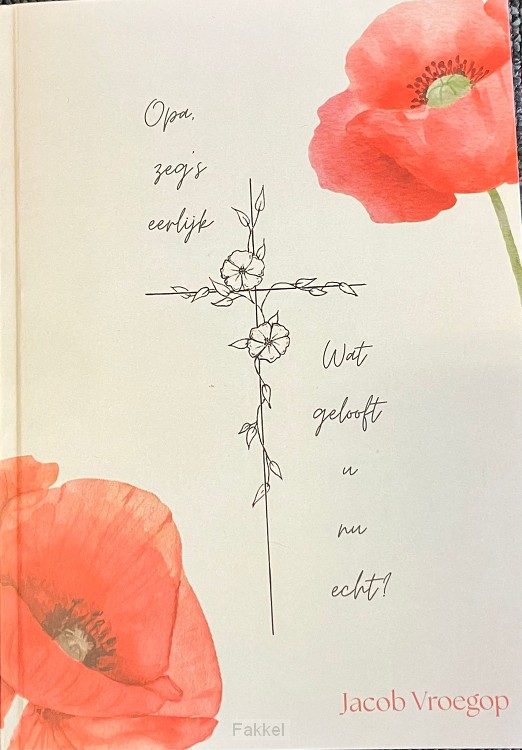 Opa,
zeg's
eerlijk
Wat
gelooft
u
nu
echt?
Jacob Vroegop
Fakkel